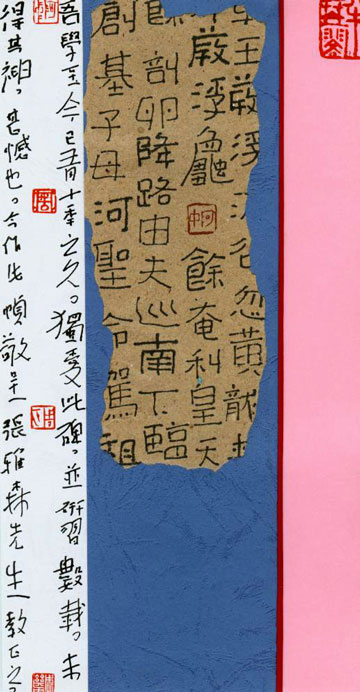 王葭浮 名忽黃龍
葭浮龜 餘奄利皇天
剖卵降路由夫巡南下臨
創基子母河聖命駕
吾學至今已有十年之久。獨愛此碑。並研習數載。未
得其神。甚憾也。今作此幀敬呈張雅森先生教正之。